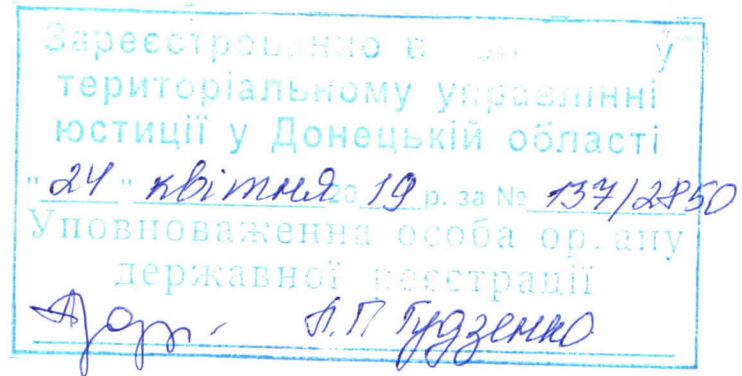 Зареєстрованно в у
територіальному управлінні
юстиції у Донецькій області
"24" квітня 2019 р. за № 137/2850
Уповноваженна особа органу
державної реєстрації
Гудзенко